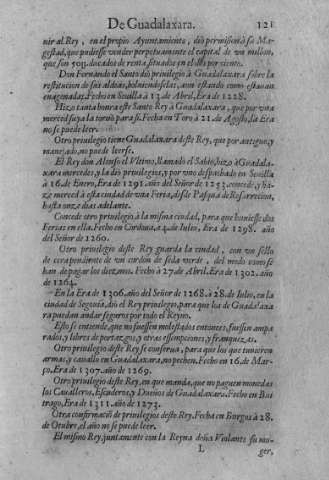 De Guadalaxara. 121
uir al Rey, en el propio Ayuntamiento, dió permission á su Ma-
gestad, que pudiesse vnder perpetuamente el capital de un millon,
que son 50y. ducados de renta, situados en el diez por ciento.
Don Fernando el Santo dió priuilegio à Guadalaxara sobre la
restitucion de sus aldeas, boluiendoselas, aun estando como estauan
enagenadas. Fecho en Seuilla à 13 de Abril, Era de 1228.
Hizo tanta honra este Santo Rey à Guadalaxara, que por vna
merced suya la tomò para si. Fecha en Toro à 21 de Agosto, la Era
no se puede leer.
Otro priuilegio tiene Guadalaxara deste Rey, que por antiguo, y
maneado, no puede leerse.
El Rey don Alonso el Vltimo, llamado el Sabio, hizo à Guadala-
xara mercedes, y la dió priuilegios, y por vno despachado en Seuilla
à 16. de Enero, Era de 1291. año del Señor de 1253. concede, y ha-
ze merced à esta ciudad de vna Feria, desde Pasqua de Resurrecion,
hasta onze dias adelante.
Concede otro priuilegio à la misma ciudad, para que huuiesse dos
Ferias en ella. Fecho en Cordoua, à 4. de Iulio, Era de 1298. año
del Señor de 1260.
Otro priuilegio deste Rey guarda la ciudad, con vn sello
de cera pendiente de vn cordon de seda verde, del modo como se
han de pagar los diezmos. Fecho à 27 de Abril. Era de 1302. año
de 1264.
En la Era de 1306. año del Señor de 1268. à 28. de Iulio, en la
ciudad de Segouia, dió el Rey priuilegio, para que los de Guadalaxa
ra puedan andar seguros por todo el Reyno.
Esto se entiende, que no fuessen molestados entonces, fuessen ampa
rados, y libres de portazgos, y otras essempciones, y franquezas.
Otro priuilegio deste Rey se conserua, para que los que tuuieren
armas, y cauallo en Guadalaxara, no pechen. Fecho en 16. de Mar-
zo. Era de 1307. año de 1269.
Otro priuilegio deste Rey, en que manda, que no paguen monedas
los Caualleros, Escuderos, y Dueños de Guadalaxara. Fecho en Bui
trago, Era de 1311. año de 1273.
Otra confirmació de priuilegios deste Rey. Fecha en Burgos à 28.
de Otubre, el año no se puede leer.
El mismo Rey, juntamente con la Reyna doña Violante su mu-
L ger,